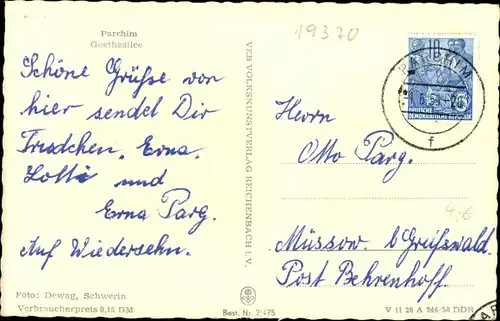 Parchim
Goetheallee
Schöne Grüße von
hier sendet Dir
Trudchen, Erna,
Lotti und
Erna Parg.
Auf Wiedersehn.
Foto: Dewag, Schwerin
Verbraucherpreis 0,15 DM
VEB VOLKSKUNSTVERLAG REICHENBACH i. V.
Best. Nr. 2/475
19370
10
PARCHIM
DEUTSCHE
DEMOKRATISCHE REPUBLIK
f
Herrn
Otto Parg.
4,€
Müssow. b/Greifswald.
Post Behrenhoff.
V 11 28 A 246-58 DDR